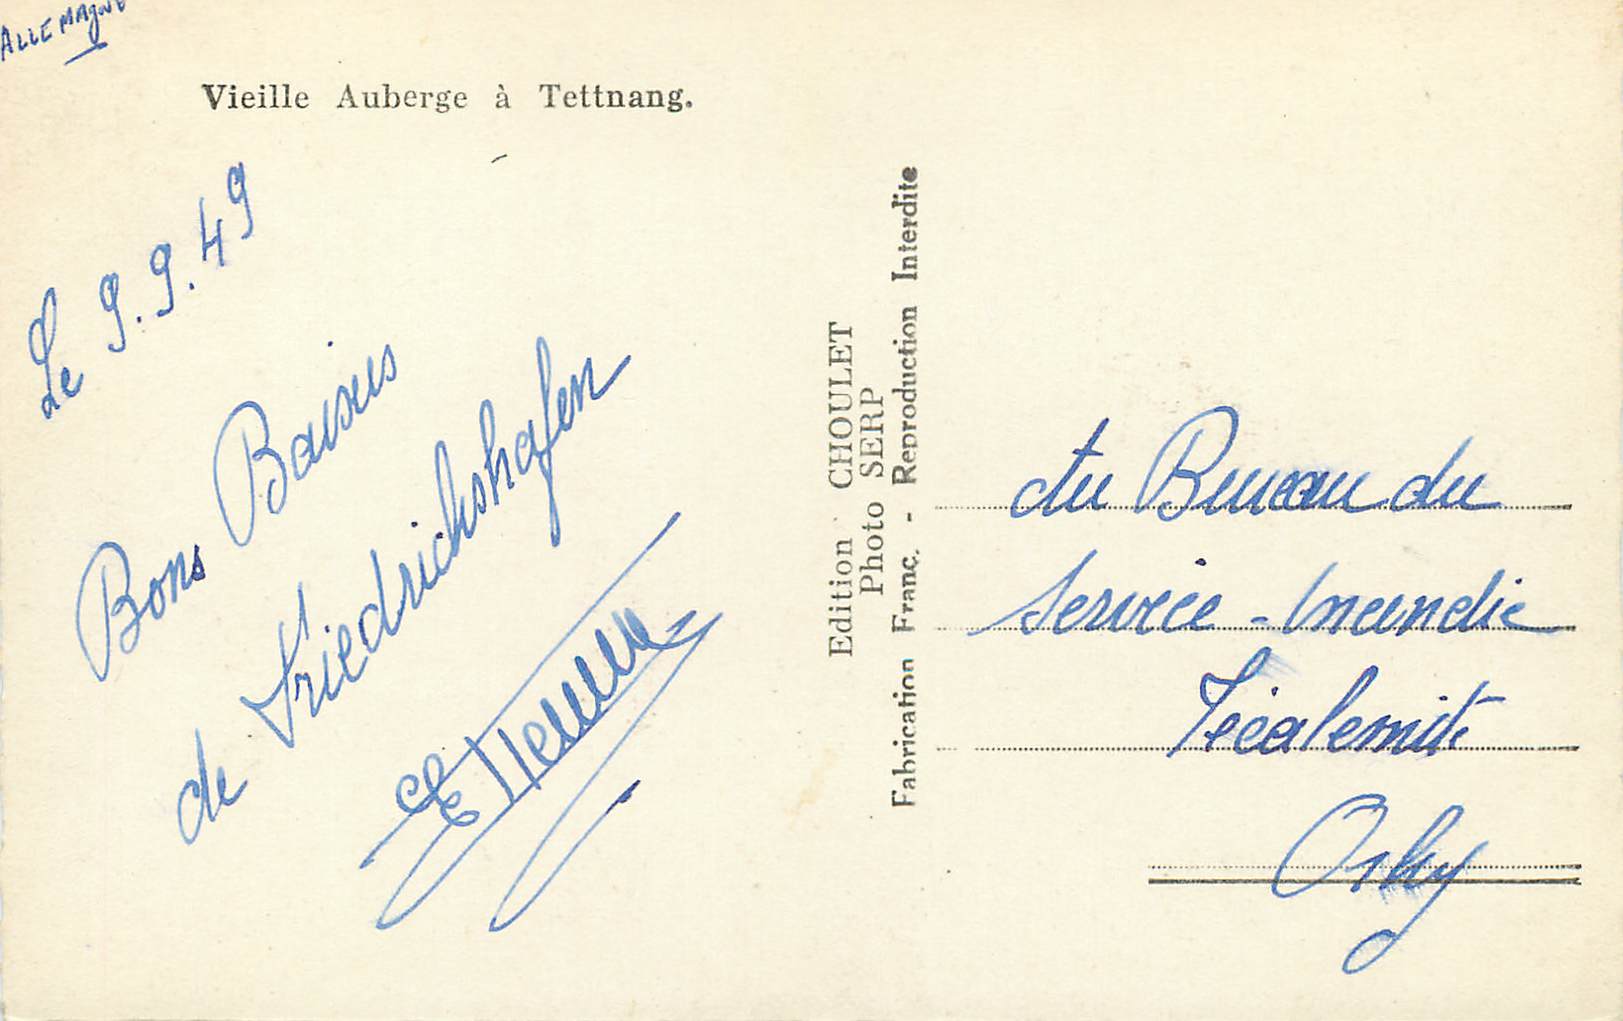 ALLEMAGNE
Vieille Auberge à Tettnang.
Le 9.9.49
Bons Baisers
de Friedrichshafen
Edition CHOULET
Photo SERP
Fabrication Franç. - Reproduction Interdite
du Bureau du
Service - Incendie
Técalemit
Orly